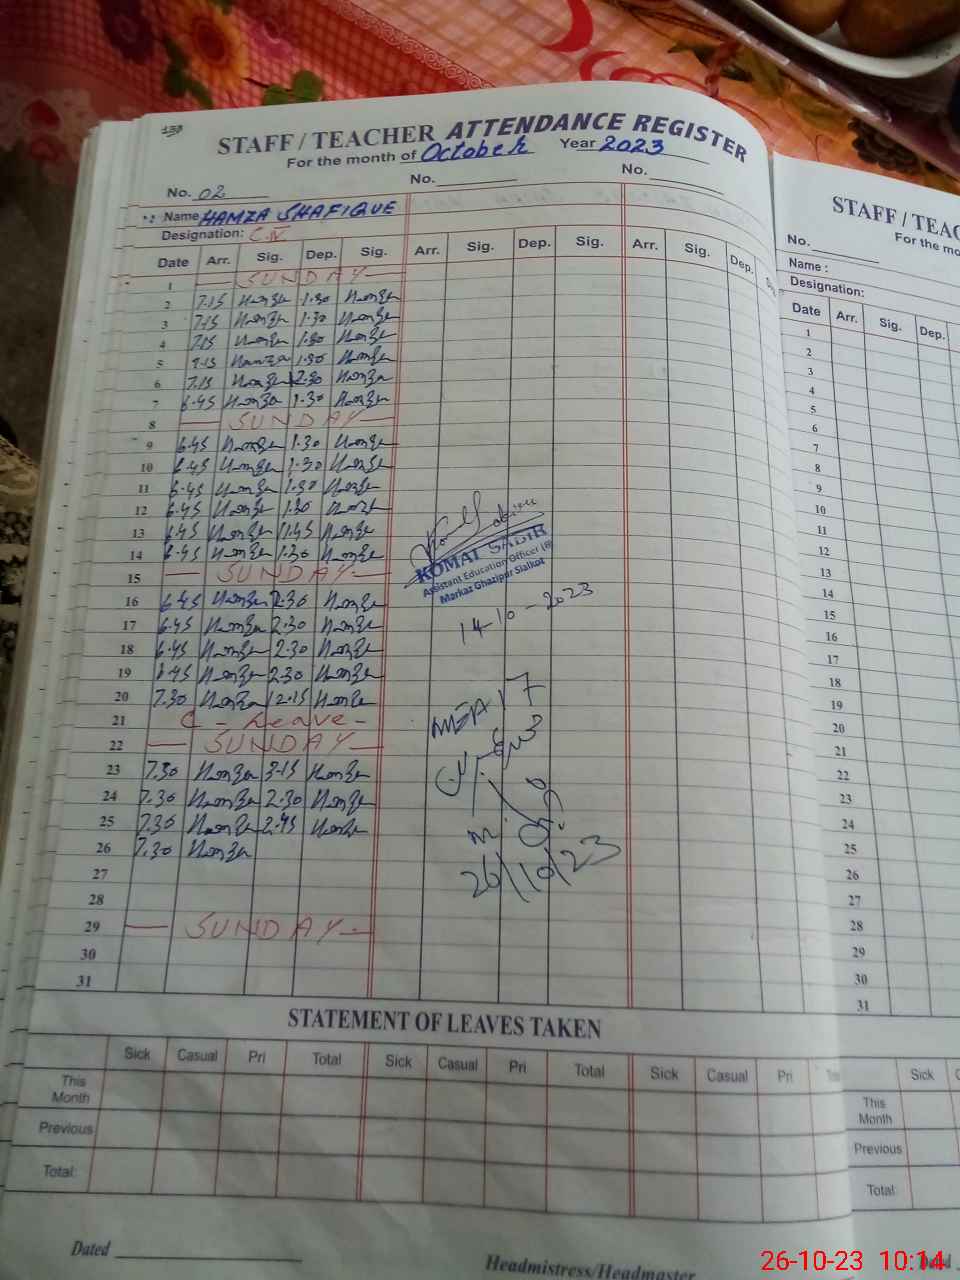 STAFF / TEACHER ATTENDANCE REGISTER
For the month of October Year 2023
No. 02 No. No.
Name HAMZA SHAFIQUE
Designation: C.N
Date Arr. Sig. Dep. Sig. Arr. Sig. Dep. Sig. Arr. Sig. Dep.
1 SUNDAY
2 7.15 Hamza 1.30 Hamza
3 7.15 Hamza 1.30 Hamza
4 7.15 Hamza 1.30 Hamza
5 7.15 Hamza 1.30 Hamza
6 7.15 Hamza 12.30 Hamza
7 6.45 Hamza 1.30 Hamza
8 SUNDAY
9 6.45 Hamza 1.30 Hamza
10 6.45 Hamza 1.30 Hamza
11 6.45 Hamza 1.30 Hamza
12 6.45 Hamza 1.30 Hamza
13 6.45 Hamza 11.45 Hamza
14 6.45 Hamza 1.30 Hamza
15 SUNDAY
16 6.45 Hamza 2.30 Hamza
17 6.45 Hamza 2.30 Hamza
18 6.45 Hamza 2.30 Hamza
19 6.45 Hamza 2.30 Hamza
20 7.30 Hamza 12.15 Hamza
21 C - Leave -
22 SUNDAY
23 7.30 Hamza 3.15 Hamza
24 7.30 Hamza 2.30 Hamza
25 7.30 Hamza 2.45 Hamza
26 7.30 Hamza
27
28
29 SUNDAY
30
31
KOMAL SABIR
Assistant Education Officer
Markaz Ghazipur Sialkot
14-10-2023
MEA 17
26/10/23
STATEMENT OF LEAVES TAKEN
Sick Casual Pri Total Sick Casual Pri Total Sick Casual Pri
This Month
Previous
Total:
Dated
Headmistress/Headmaster
STAFF / TEAC
For the mo
No.
Name :
Designation:
Date Arr. Sig. Dep.
1
2
3
4
5
6
7
8
9
10
11
12
13
14
15
16
17
18
19
20
21
22
23
24
25
26
27
28
29
30
31
Sick
This Month
Previous
Total
26-10-23 10:14